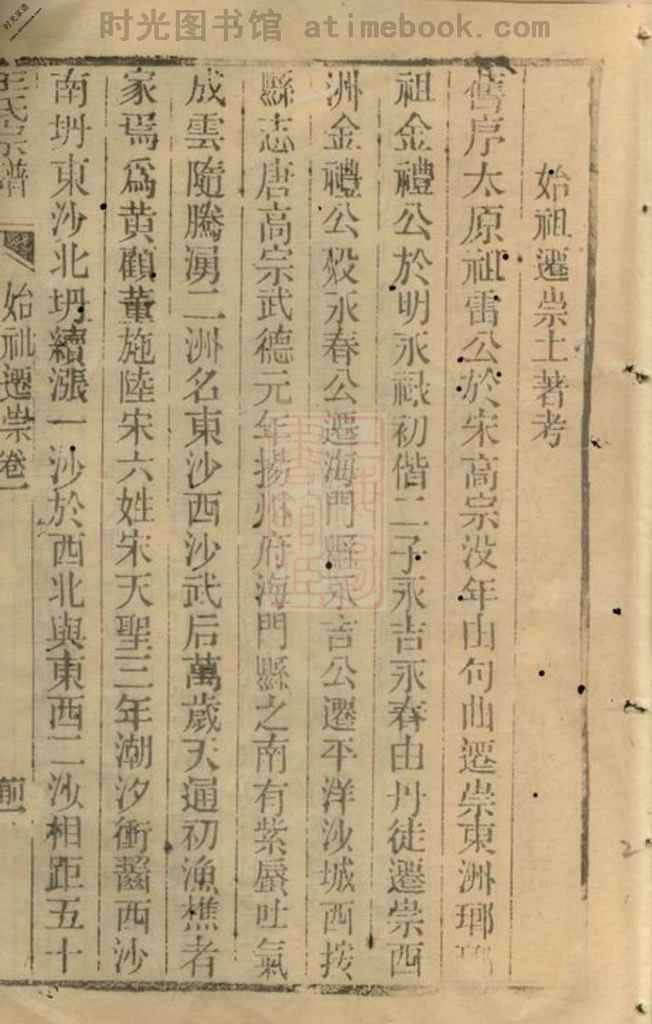 时光图书馆 atimebook.com
始祖遷崇土著考
舊序太原祖雷公於宋高宗没年由句曲遷崇東洲瑯
祖金禮公於明永禄初偕二子永吉永春由丹徒遷崇西
洲金禮公殁永春公遷海門縣永吉公遷平洋沙城西按
縣志唐高宗武德元年揚州府海門縣之南有紫蜃吐氣
成雲隨騰湧二洲名東沙西沙武后萬歲天通初漁樵者
家焉爲黄顧董施陸宋六姓宋天聖三年潮汐衝齧西沙
南坍東沙北坍續漲一沙於西北與東西二沙相距五十
王氏宗譜
始祖遷崇卷一
前一